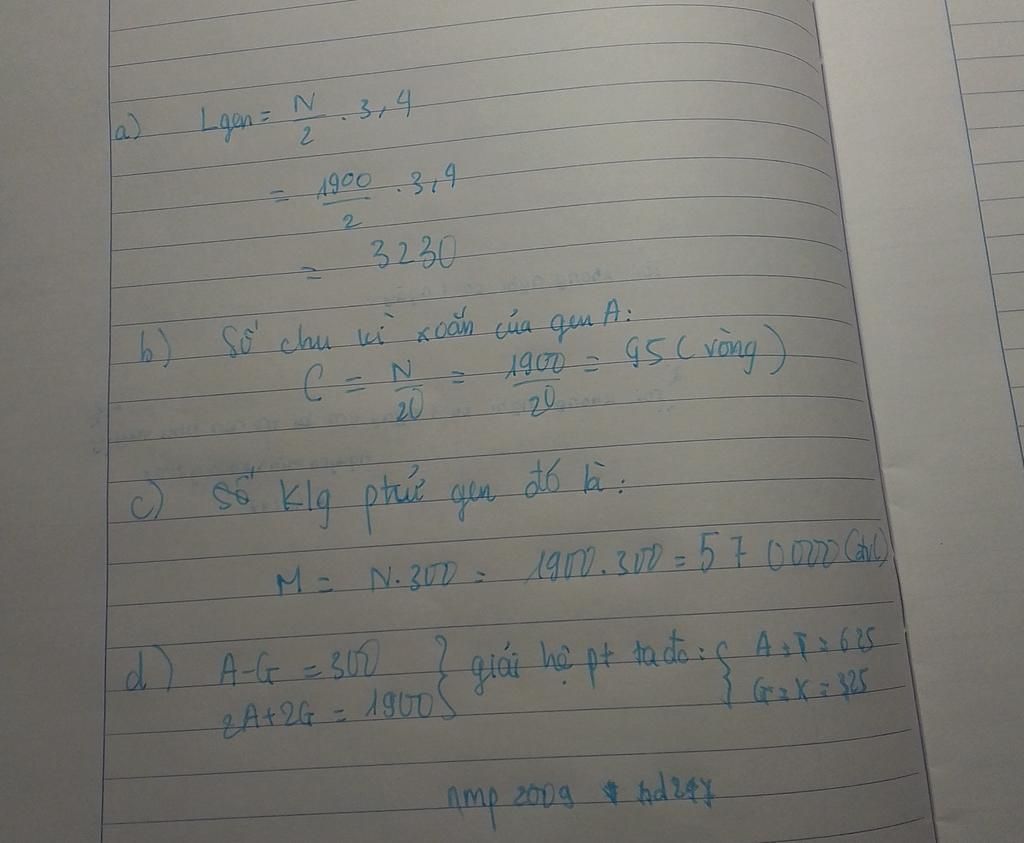 a) Lgen = N/2 . 3,4
= 1900/2 . 3,4
= 3230
b) Số chu kì xoắn của gen A:
C = N/20 = 1900/20 = 95 (vòng)
c) Số Klg phtử gen đó là:
M = N.300 = 1900.300 = 570000 (đvC)
d) A-G = 300 } giải hệ pt ta đc: { A=T=625
2A+2G = 1900 } { G=X=325
nmp2009 hd247